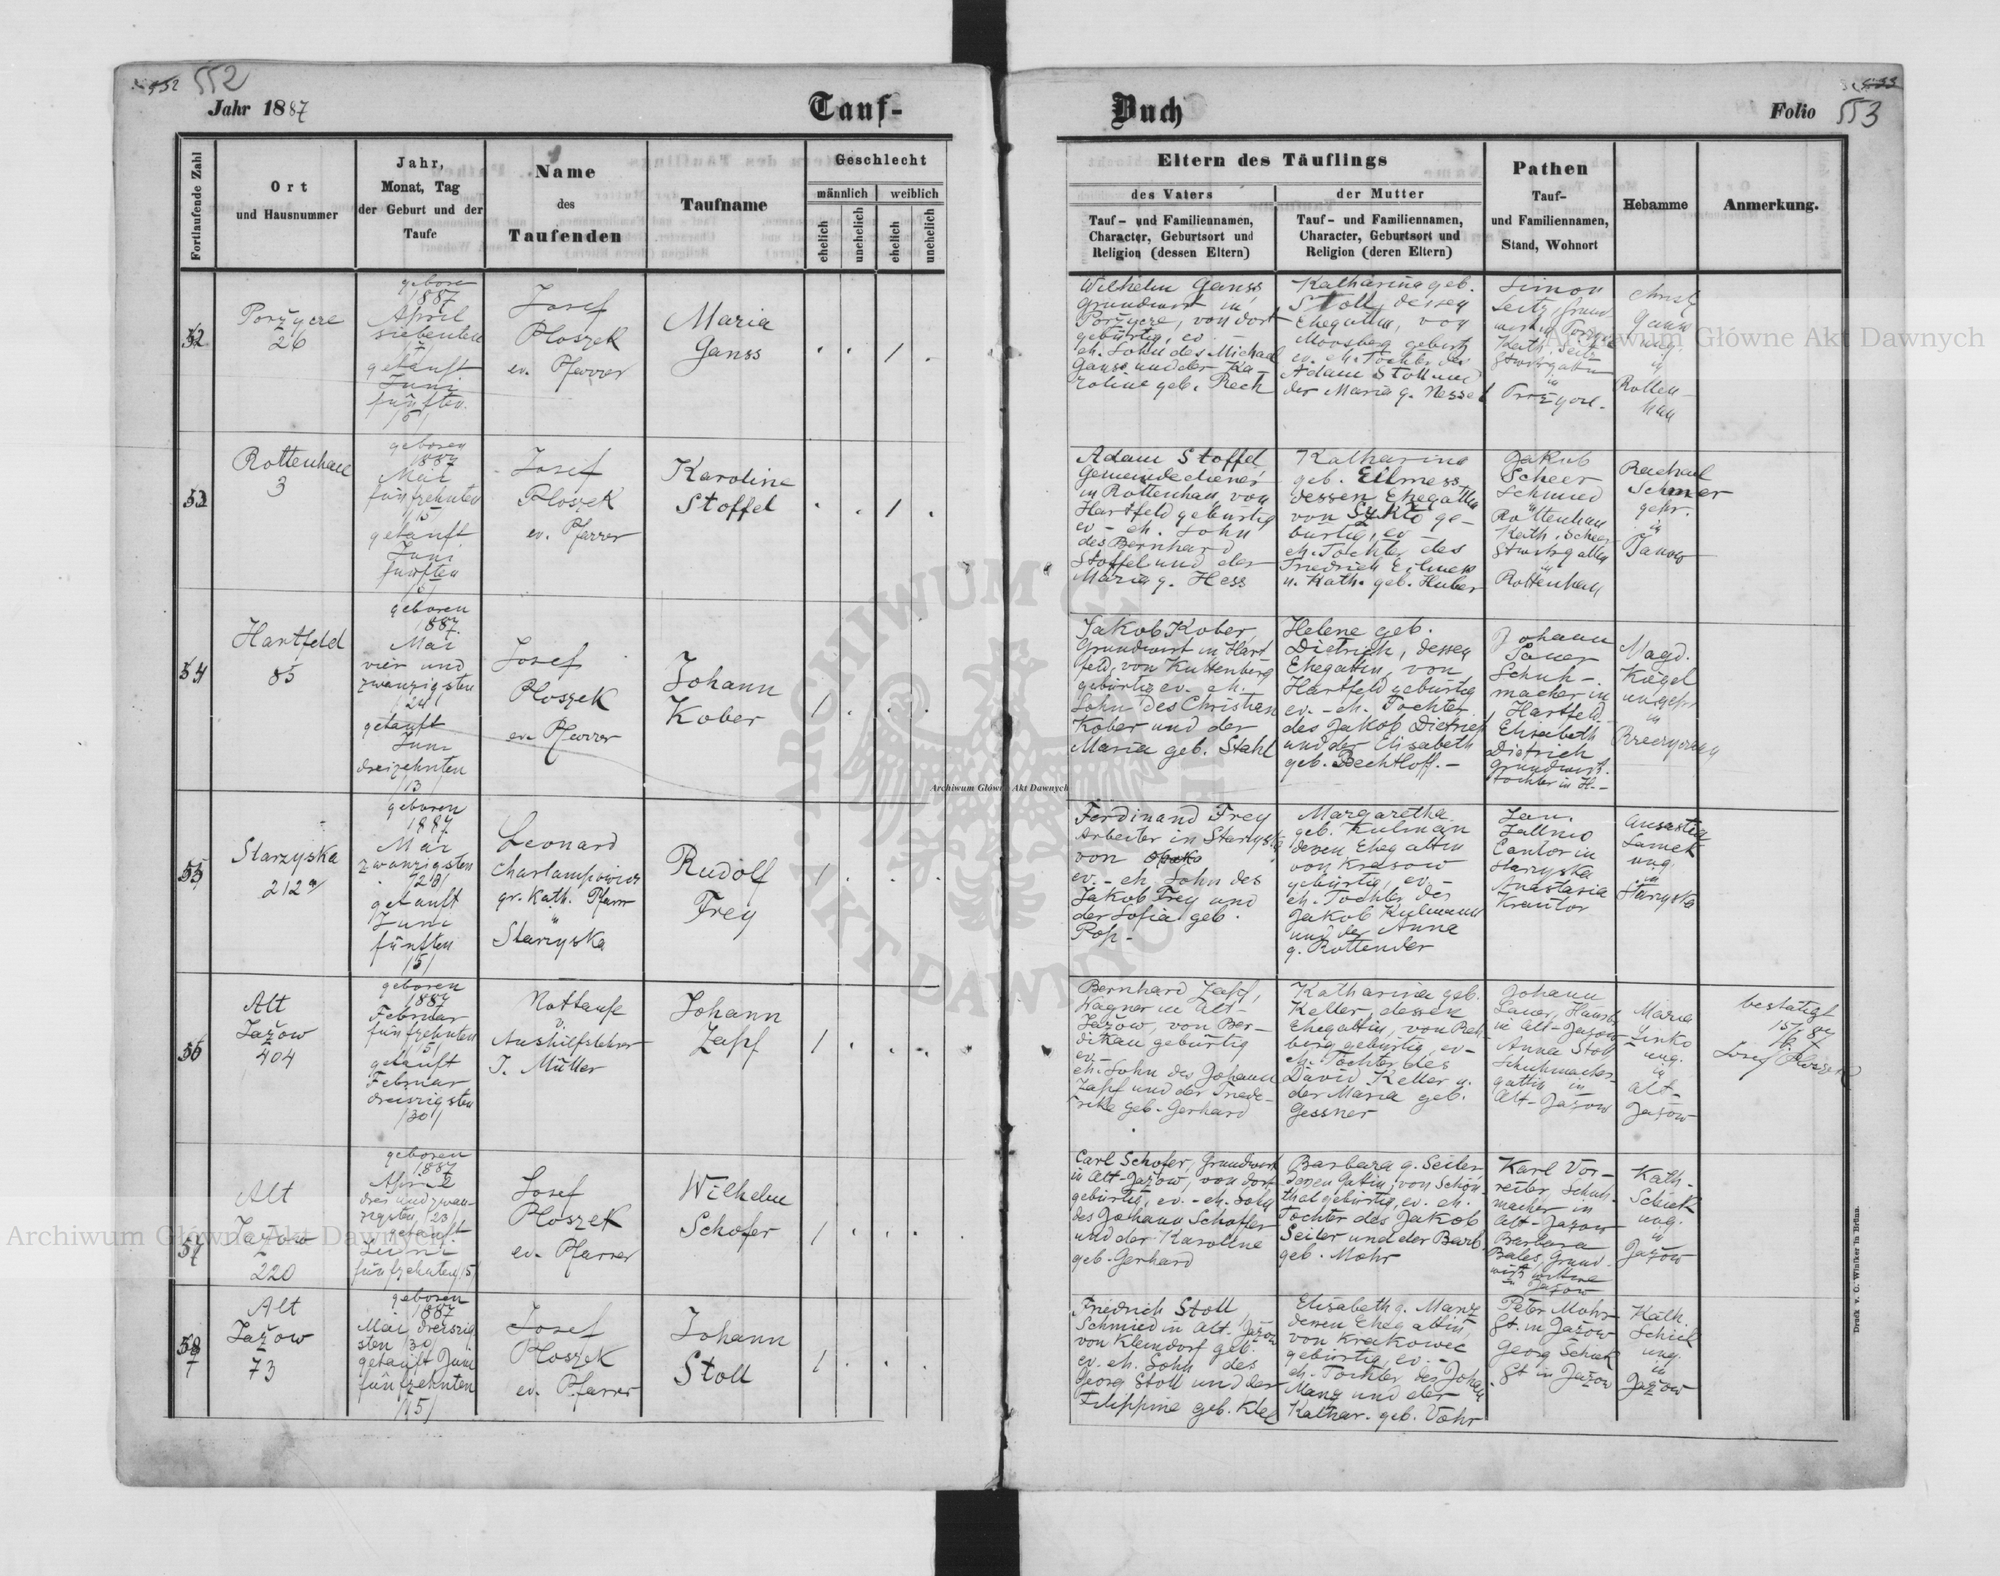 552
Jahr 1887
Tauf-
Fortlaufende Zahl
Ort
und Hausnummer
Jahr,
Monat, Tag
der Geburt und der
Taufe
Name
des
Taufenden
Taufname
Geschlecht
männlich
weiblich
ehelich
unehelich
ehelich
unehelich
52
Porzycze
26
geboren
1887
April
siebenten
getauft
Juni
fünften
/5/
Josef
Ploszek
ev. Pfarrer
Maria
Ganss
1
53
Rottenhan
3
geboren
1887
Mai
fünfzehnten
15
getauft
Juni
fünften
Josef
Ploszek
ev. Pfarrer
Karoline
Stoffel
1
54
Hartfeld
85
geboren
1887
Mai
vier und
zwanzigsten
/24/
getauft
Juni
dreizehnten
/13/
Josef
Ploszek
ev. Pfarrer
Johann
Kober
1
55
Starzyska
212
geboren
1887
Mai
zwanzigsten
/20/
getauft
Juni
fünften
/5/
Leonard
Charlampowicz
gr. kath. Pfarr
in
Starzyska
Rudolf
Frey
1
56
Alt
Jażow
404
geboren
1887
Februar
fünfzehnten
/15/
getauft
Februar
dreiszigsten
/30/
Nottaufe
v.
Aushilfslehrer
J. Müller
Johann
Zapf
1
57
Alt
Jażow
220
geboren
1887
April
drei und zwan-
zigsten /23/
getauft
Juni
fünfzehnten /15/
Josef
Ploszek
ev. Pfarrer
Wilhelm
Schofer
1
58
Alt
Jażow
73
geboren
1887
Mai dreiszig
sten /30/
getauft Juni
fünfzehnten
/15/
Josef
Ploszek
ev. Pfarrer
Johann
Stoll
1
Buch
Folio 553
Eltern des Täuflings
des Vaters
der Mutter
Tauf- und Familiennamen,
Character, Geburtsort und
Religion (dessen Eltern)
Tauf- und Familiennamen,
Character, Geburtsort und
Religion (deren Eltern)
Pathen
Tauf-
und Familiennamen,
Stand, Wohnort
Hebamme
Anmerkung.
Wilhelm Ganss
Grundwirt in
Porzycze, von dort
gebürtig, ev.
eh. Sohn des Michael
Ganss und der Ka-
roline geb. Rech
Katharina geb.
Stoll, dessen
Ehegattin, von
Moosberg gebürt
ev. eh. Tochter des
Adam Stoll und
der Maria g. Nessel
Simon
Seitz, Grund
Kath. Seitz
in
Christ
Ganss
ung.
in
Rotten-
han
Adam Stoffel,
Gemeindediener
in Rottenhan, von
Hartfeld gebürtig
ev. - eh. Sohn
des Bernhard
Stoffel und der
Maria g. Hess
Katharina
geb. Eilmess
dessen Ehegattin
von Szkło ge-
bürtig, ev -
eh. Tochter des
Friedrich Eilmess
u. Kath. geb. Huber
Jakob
Scheer
Schmied
in
Rottenhan
Kath. Scheer
in
Rottenhan
Rachael
gepr.
in
Janow
Jakob Kober,
Grundwirt in Hart
feld, von Kuttenberg
gebürtig ev. eh.
Sohn des Christian
Kober und der
Maria geb. Stahl
Helene geb.
Dietrich, dessen
Ehegattin, von
Hartfeld gebürtig
ev. - eh. Tochter
des Jakob Dietrich
und der Elisabeth
geb. Bechtloff. -
Johann
Schuh-
macher in
Hartfeld
Elisabeth
Dietrich
Grundwirts
tochter in H. -
Magd.
Kogel
ungepr
in
Ferdinand Frey
Arbeiter in Starzyska
von
ev. - eh. Sohn des
Jakob Frey und
der Sofia geb.
Pop. -
Margaretha
geb. Kulman
deren Ehegattin
von Krasow
gebürtig, ev. -
eh. Tochter des
Jakob Kulmann
und der Anna
g. Rottender
Jan
Cantor in
Starzyska
Anastasia
Krantor
ung.
in
Starzyska
Bernhard Zapf,
Wagner in Alt-
Jażow, von Ber-
dikau gebürtig
ev. -
eh. Sohn des Johann
Zapf und der Friede-
rike geb. Gerhard
Katharina geb.
Keller, dessen
Ehegattin, von Reh
berg gebürtig, ev -
eh. Tochter des
David Keller u.
der Maria geb.
Gessner
Johann
in Alt-Jażow
Anna Stoll
Schuhmachers
gattin in
Alt-Jażow
Maria
Linko
ung.
in
Alt-
Jażow
bestätigt
15/6 87
Josef Ploszek
Carl Schofer, Grundwirt
in Alt-Jażow, von dort
gebürtig, ev. - eh. Sohn
des Johann Schoffer
und der Karoline
geb. Gerhard
Barbara g. Seiler
deren Gattin, von Schön
thal gebürtig, ev. eh.
Tochter des Jakob
Seiler und der Barb.
geb. Mohr
Karl Vor-
reiter Schuh-
macher in
Alt-Jażow
Barbara
Bales, Grund-
wirts wittwe
in Jażow
Kath.
Schick
ung.
in
Jażow
Friedrich Stoll
Schmied in Alt-Jażow
von Kleindorf geb.
ev. eh. Sohn des
Georg Stoll und der
Filippine geb. Klee
Elisabeth g. Manz
deren Ehegattin,
von Krakowec
gebürtig, ev. -
eh. Tochter des Johann
Manz und der
Kathar. geb. Vöhr
Peter Mohr
Gt. in Jażow
Georg Schick
Gt in Jażow
Kath.
Schick
ung.
in
Jażow
Druck v. C. Winiker in Brünn.
Archiwum Główne Akt Dawnych
Archiwum Główne Akt Dawnych
Archiwum Główne Akt Dawnych